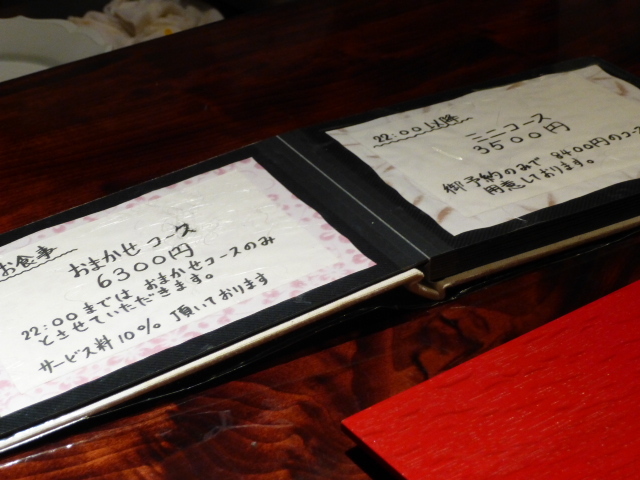 お食事
おまかせコース
6300円
22:00までは おまかせコースのみ
とさせていただきます。
サービス料10% 頂いております
22:00 以降
ミニコース
3500円
御予約のみで 8400円のコース
用意しております。